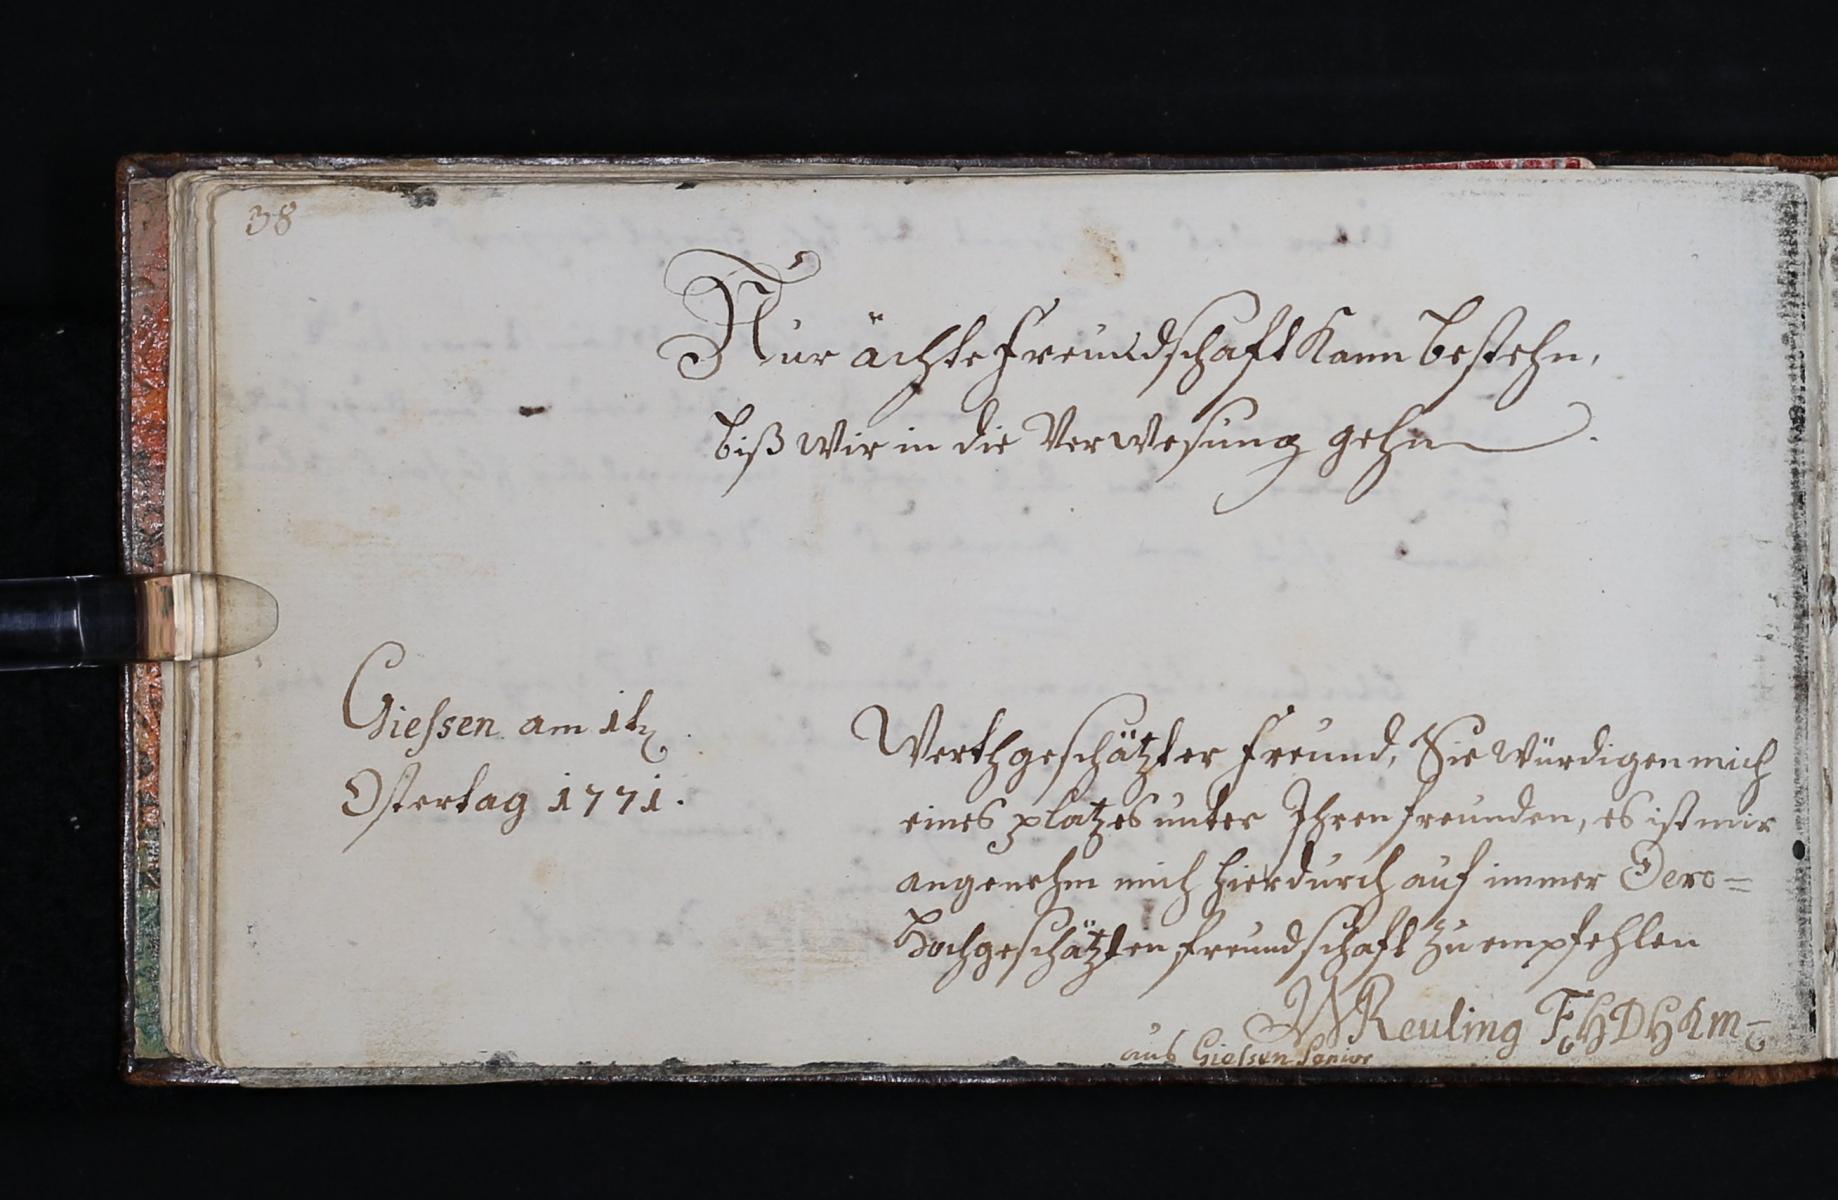 38
Nur ächte Freundschaft Kann bestehn,
biß wir in die Verwesung gehn.
Giessen am 1t
Ostertag 1771.
Werthgeschätzter Freund, Sie würdigen mich
eines platzes unter Ihren freunden, es ist mir
angenehm mich hierdurch auf immer Dero=
Hochgeschätzten freundschaft zu empfehlen
Reuling
aus Giessen Senior